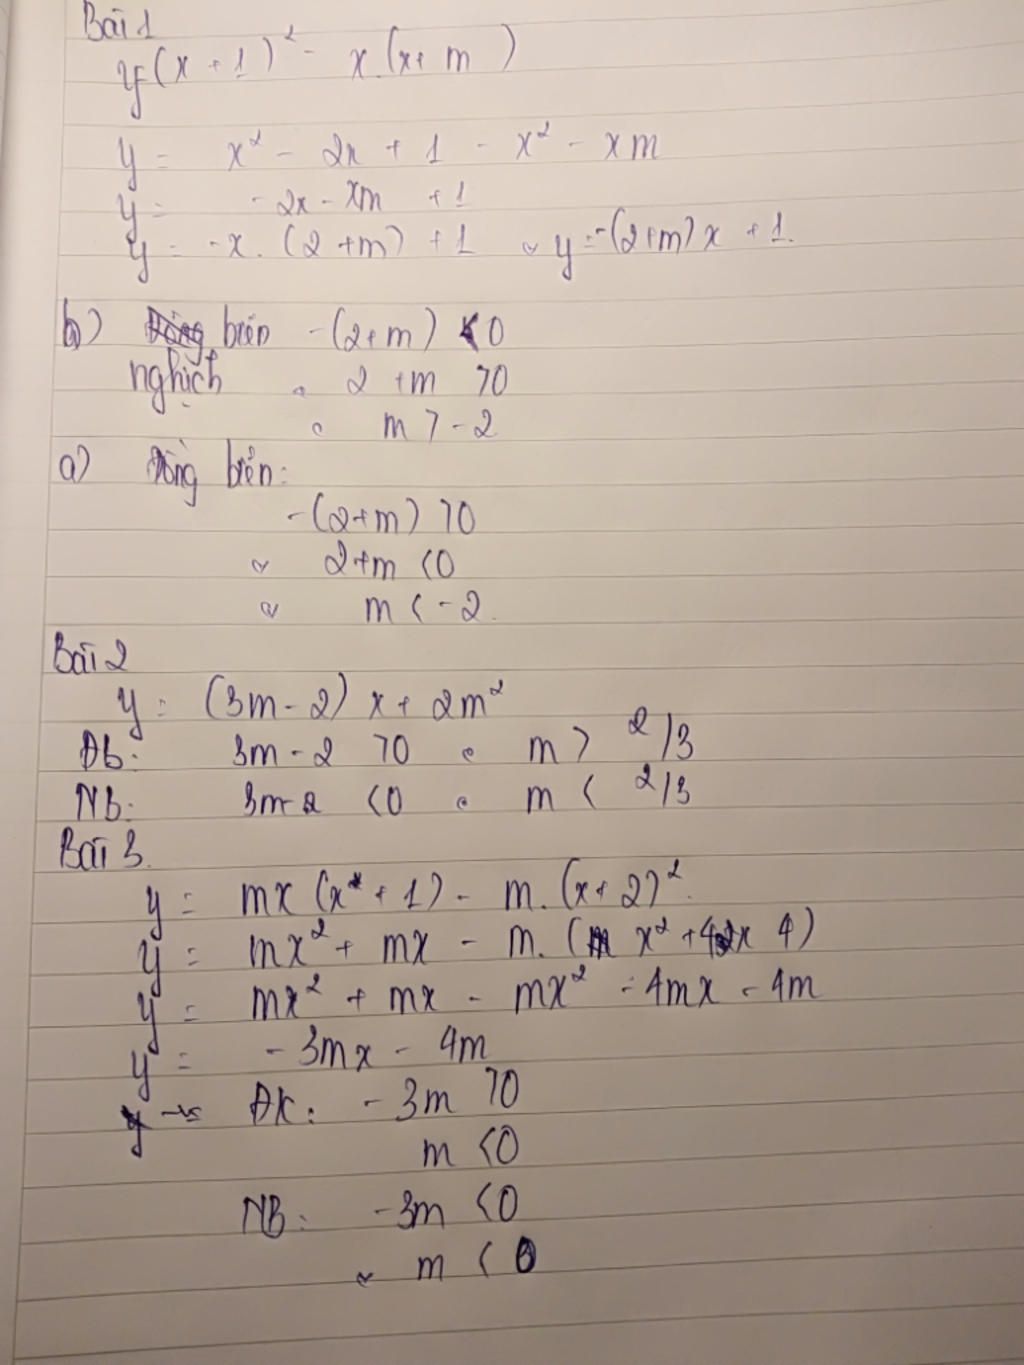 Bài 1
y=(x+1)² - x.(x+m)
y = x² - 2x + 1 - x² - xm
y = -2x - xm + 1
y = -x.(2+m) + 1 y=-(2+m)x + 1.
b) biến -(2+m) < 0
nghịch 2 + m > 0
m > -2
a) Đồng biến:
-(2+m) > 0
2+m < 0
m < -2.
Bài 2
y = (3m-2)x + 2m²
Đb: 3m - 2 > 0 m > 2/3
NB: 3m-2 < 0 m < 2/3
Bài 3.
y = mx(x+1) - m.(x+2)².
y = mx² + mx - m.(x² + 4x 4)
y = mx² + mx - mx² - 4mx - 4m
y = -3mx - 4m
ĐK: -3m > 0
m < 0
NB: -3m < 0
m < 0